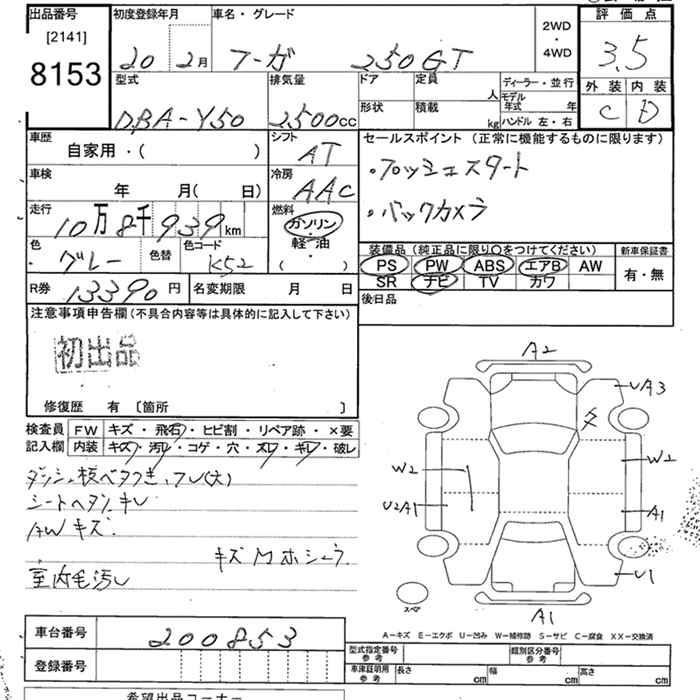 出品番号 初度登録年月 車名・グレード 2WD・4WD 評価点
[2141]
8153 20 2月 フーガ 250GT 3.5
型式 排気量 ドア 定員 人 ディーラー・並行 外装 内装
形状 積載 kg モデル年式 年
DBA-Y50 2500cc ハンドル 左・右 C D
車歴 シフト セールスポイント (正常に機能するものに限ります)
自家用・( ) AT
・プッシュスタート
車検 冷房
年 月( 日) AAC
・バックカメラ
走行 燃料
10万8千939km ガソリン・軽油
( )
色 色替 色コード 装備品(純正品に限り○をつけてください) 新車保証書
グレー K52 PS PW ABS エアB AW 有・無
SR ナビ TV カワ
R券 13390円 名変期限 月 日 後日品
注意事項申告欄(不具合内容等は具体的に記入して下さい)
初出品
修復歴 有 [箇所 ]
検査員 FW キズ・飛石・ヒビ割・リペア跡・×要
記入欄 内装 キズ・汚レ・コゲ・穴・スレ・キレ・破レ
A2
UA3
W2
W2
U2A1
A1
U1
スペア
A1
シートヘタリ・キレ
AWキズ
室内毛汚レ
A-キズ E-エクボ U-凹み W-補修跡 S-サビ C-腐食 XX-交換済
車台番号 200853
登録番号
型式指定番号 参考 類別区分番号 参考
車庫証明用 参考 長さ cm 幅 cm 高さ cm
希望出品コーナー